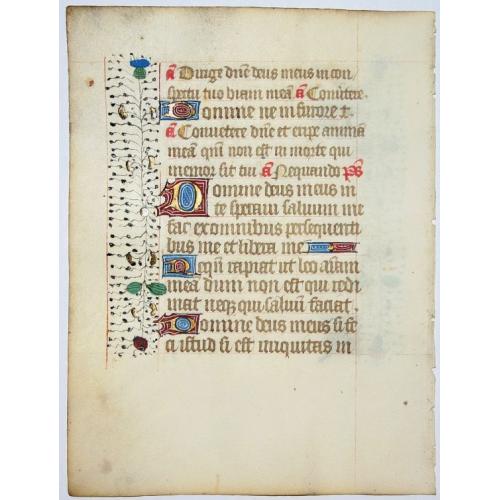 a Dirige dne deus meus in con
spectu tuo viam meā a Conu̾tere.
Domine ne in furore t.
a Convertere dne et eripe animā
meā qm̄ non est in morte qui
memor sit tui a Nequando ps
Domine deus meus in
te speravi salvum me
fac ex omnibus persequenti
bus me et libera me
Nequn̄ rapiat ut leo aīam
mea dum non est qui redi
mat neq; qui salvū faciat.
Domine deus meus si fe
ci istud si est iniquitas in